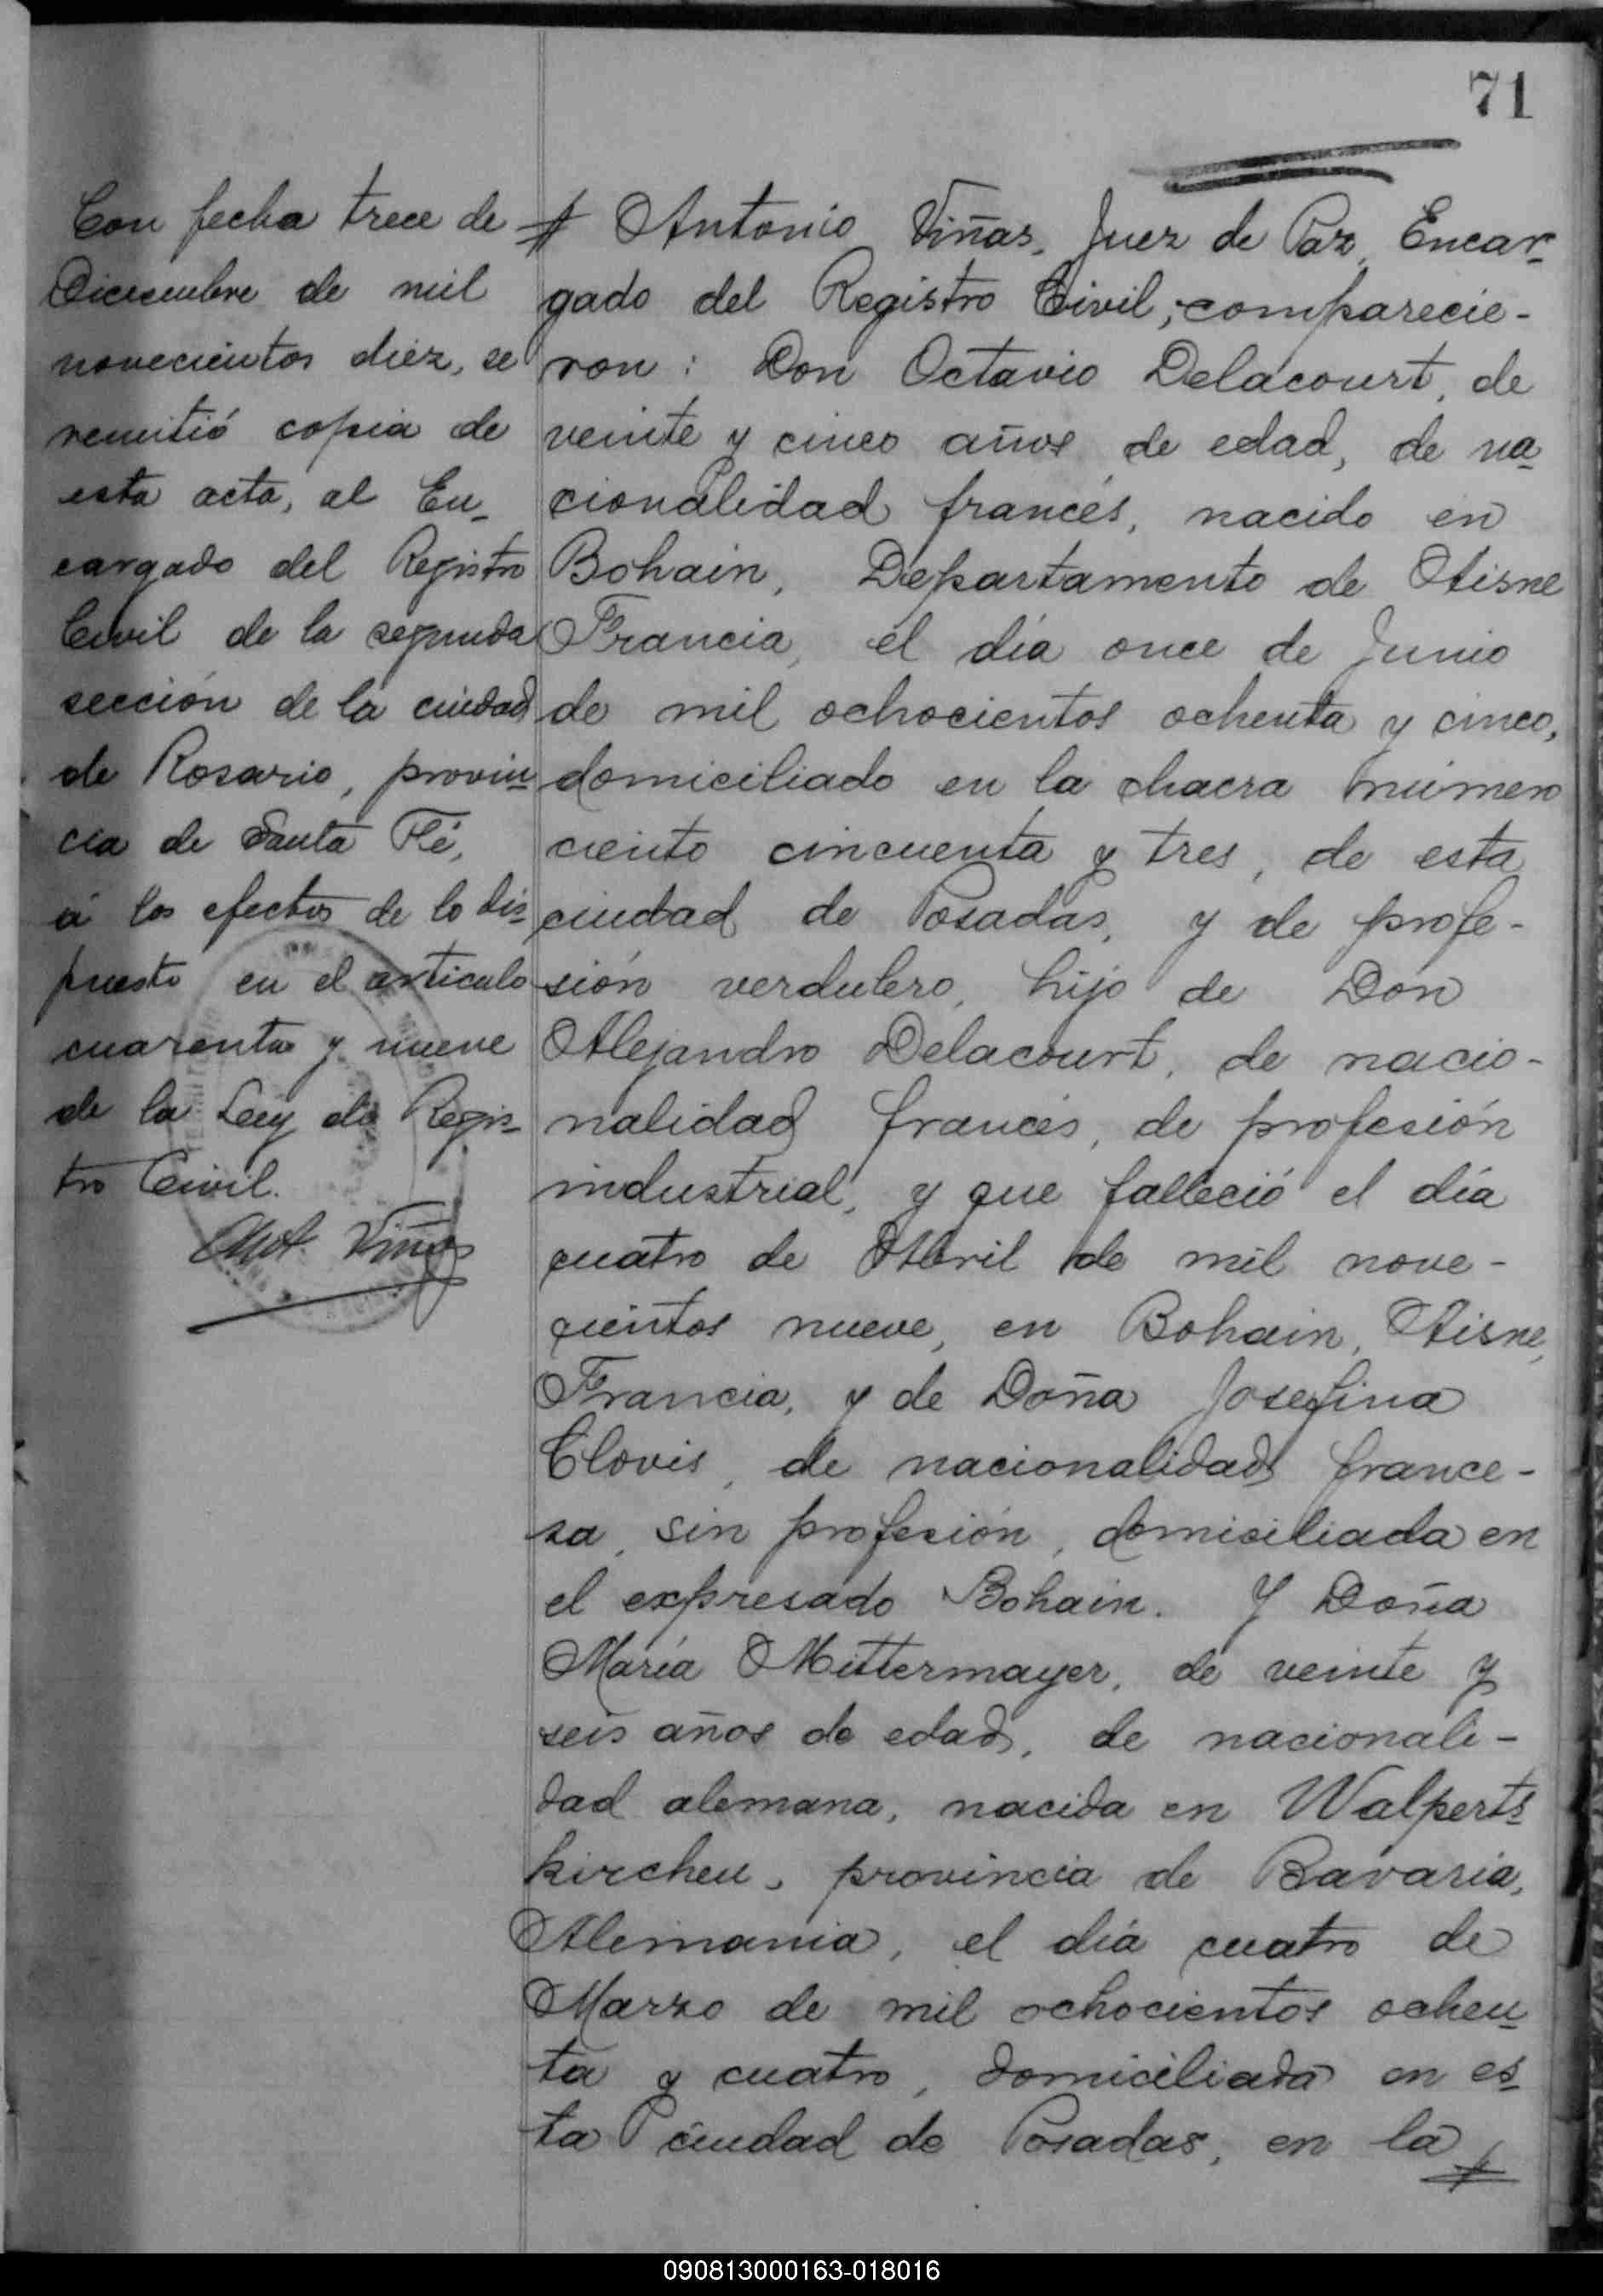 71
Con fecha trece de
Diciembre de mil
novecientos diez, se
remitió copia de
esta acta, al En-
cargado del Registro
Civil de la segunda
sección de la ciudad
de Rosario, provin-
cia de Santa Fé,
á los efectos de lo dis-
puesto en el artículo
cuarenta y nueve
de la Ley de Regis-
tro Civil.
Ant. Viñas
Antonio Viñas, Juez de Paz, Encar-
gado del Registro Civil, comparecie-
ron: Don Octavio Delacourt, de
veinte y cinco años de edad, de na-
cionalidad francés, nacido en
Bohain, Departamento de Aisne
Francia, el día once de Junio
de mil ochocientos ochenta y cinco,
domiciliado en la chacra número
ciento cincuenta y tres, de esta
ciudad de Posadas, y de profe-
sión verdulero, hijo de Don
Alejandro Delacourt, de nacio-
nalidad francés, de profesión
industrial, y que falleció el día
cuatro de Abril de mil nove-
cientos nueve, en Bohain, Aisne,
Francia, y de Doña Josefina
Clovis, de nacionalidad france-
sa, sin profesión, domiciliada en
el expresado Bohain. Y Doña
María Mittermayer, de veinte y
seis años de edad, de nacionali-
dad alemana, nacida en Walperts-
kirchen, provincia de Bavaria,
Alemania, el día cuatro de
Marzo de mil ochocientos ochen-
ta y cuatro, domiciliada en es-
ta ciudad de Posadas, en la
090813000163-018016